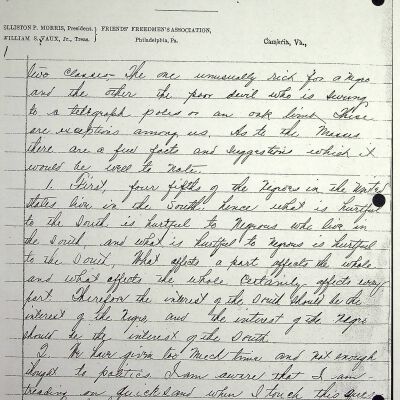 OLLISTON P. MORRIS, President.
WILLIAM S. VAUX, Jr., Treas.
FRIENDS' FREEDMEN'S ASSOCIATION,
Philadelphia, Pa.
Cambria, Va.,
two classes. The one unusually rich for a negro
and the other the poor devil who is swung
to a telegraph poles or an oak limb. These
are exceptions among us. As to the Masses
there are a few facts and suggestions which it
would be well to note.
1. First, four fifths of the Negroes in the United
states live in the South. hence what is hurtful
to the South is hurtful to Negroes who live in
the South, and what is hurtful to negroes is hurtful
to the South. What affects a part affects the whole
and what affects the whole certainly affects every
part. Therefore the interest of the South should be the
interest of the Negro, and the interest of the Negro
should be the interest of the South.
2. We have given too much time and not enough
thought to politics. I am aware that I am
treading on quicksand when I touch this